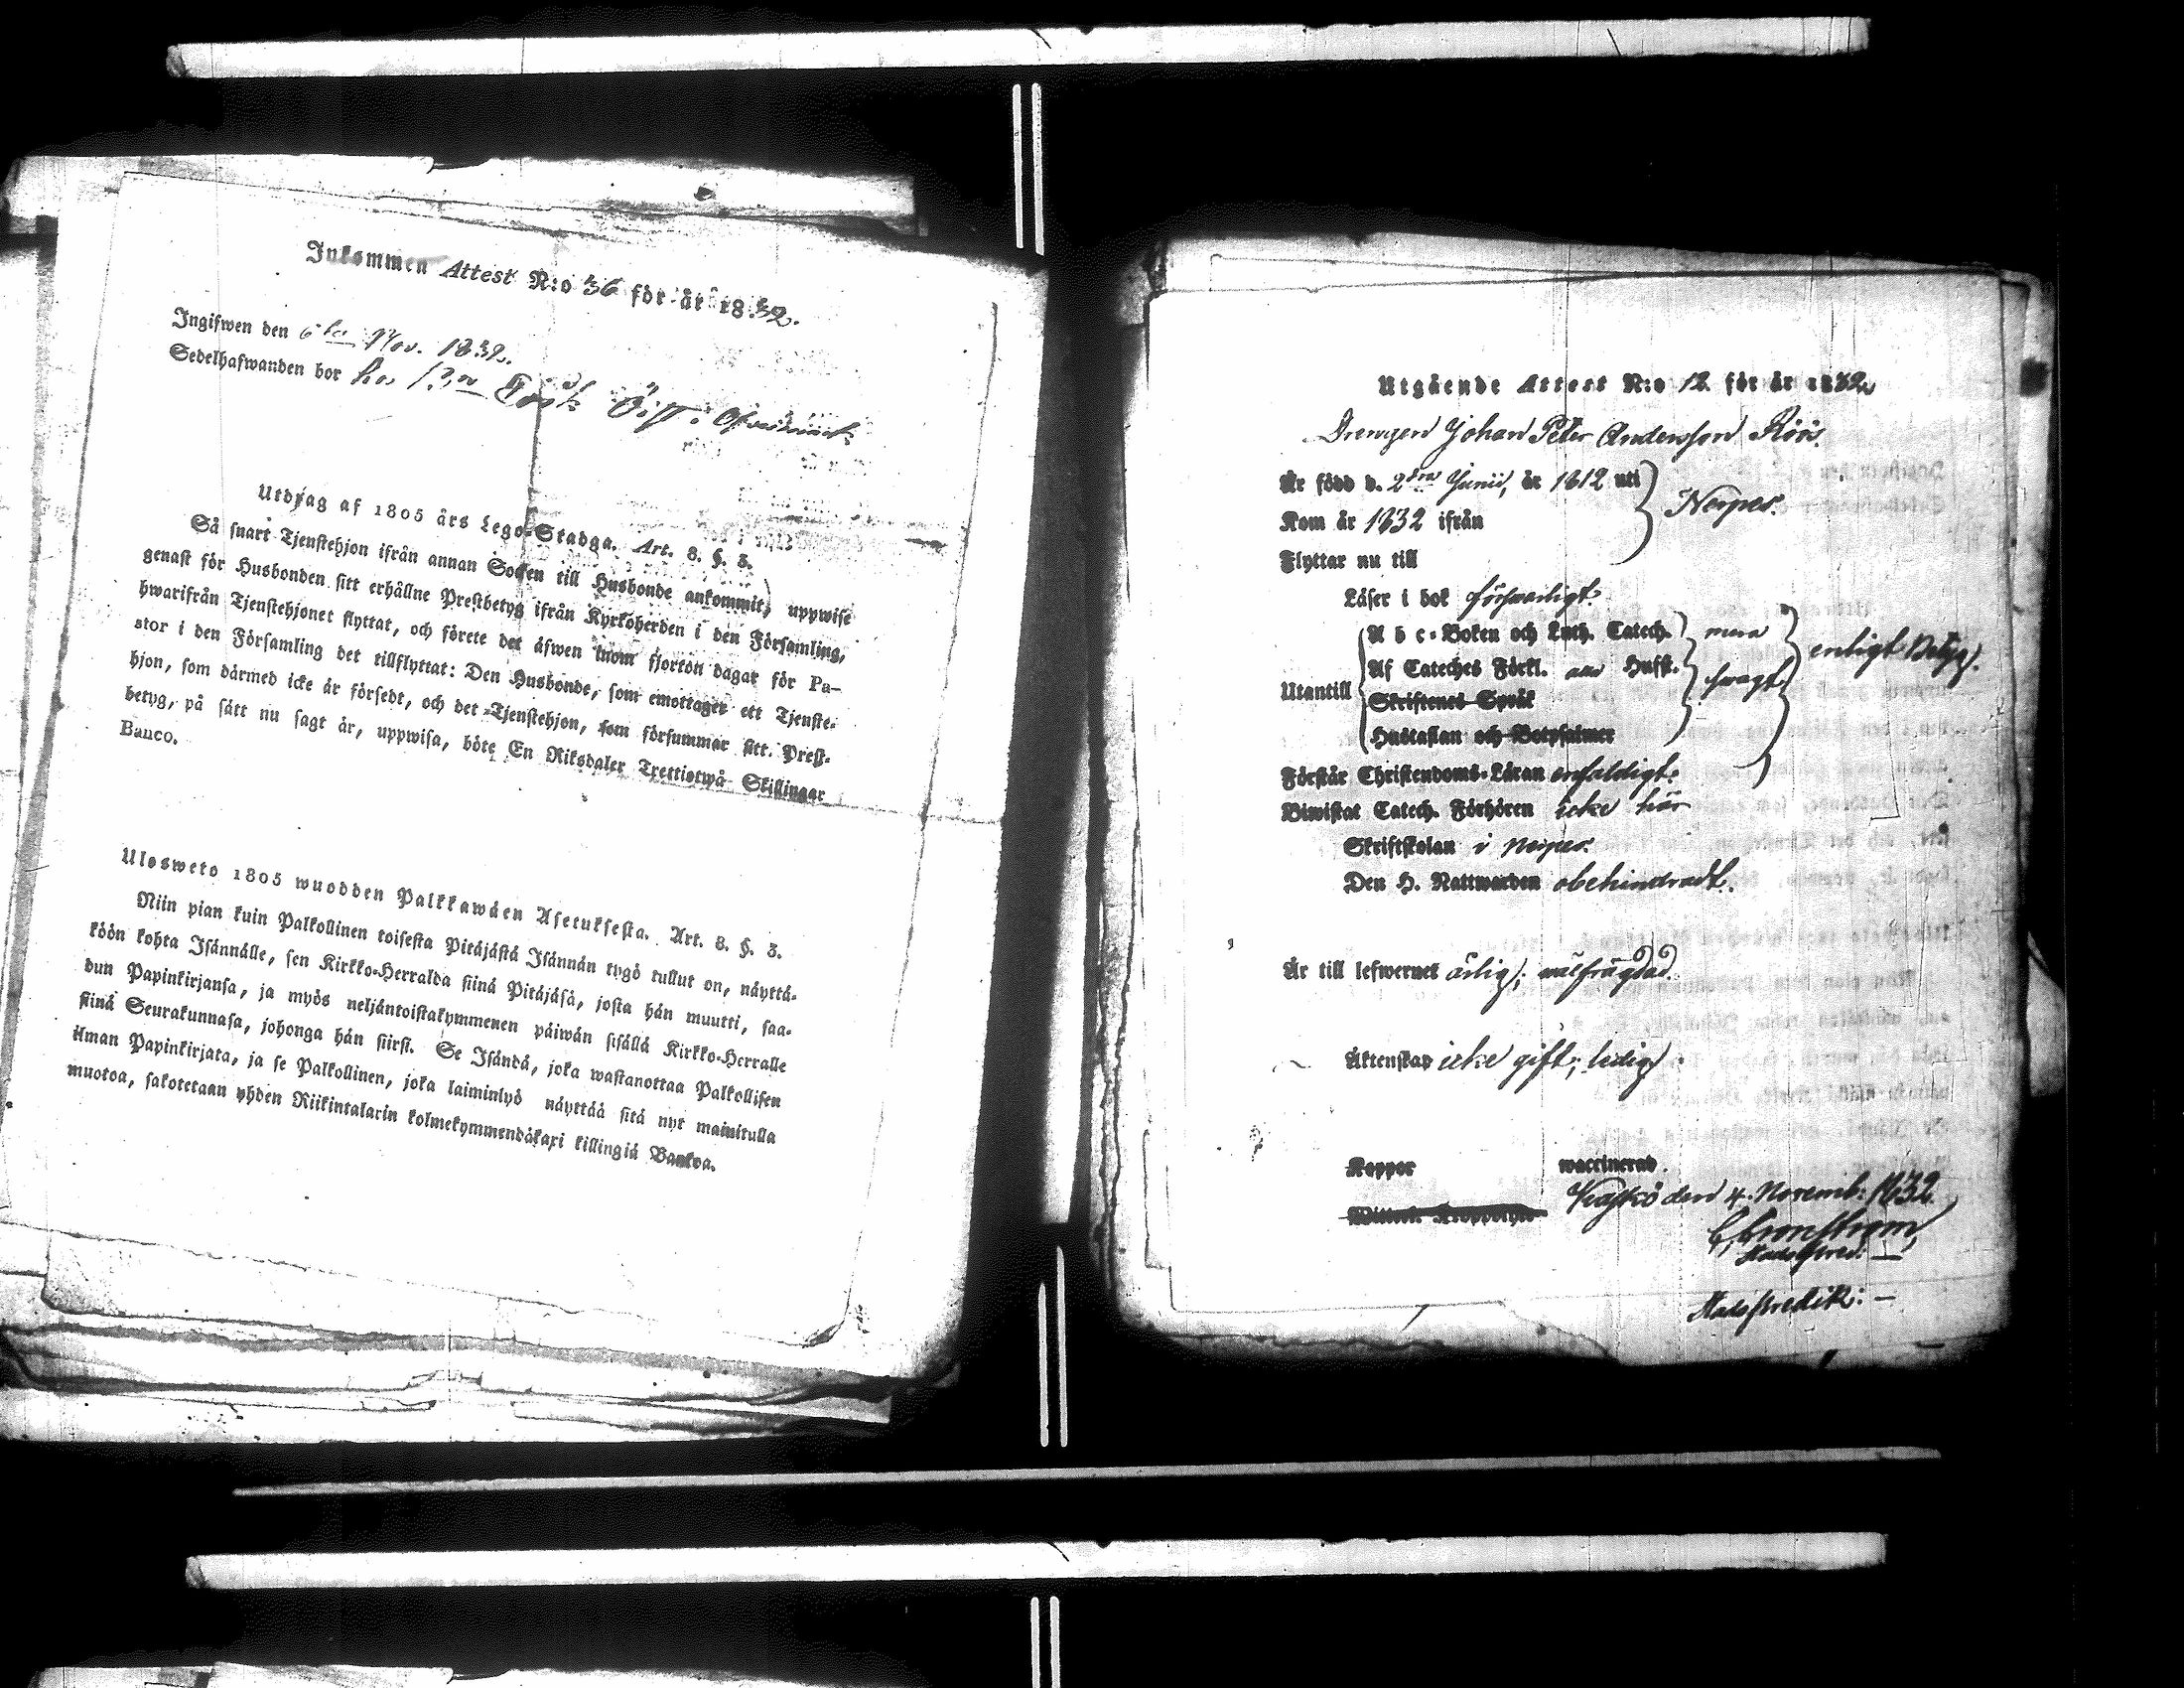 Inkommen Attest N:o 36 för år 1832.
Ingifwen den 6te Nov. 1832.
Sedelhafwanden bor hos
Utdrag af 1805 års Lego-Stadga. Art. 8. §. 3.
Så snart Tjenstehjon ifrån annan Socken till Husbonde ankommit, uppwise
genast för Husbonden sitt erhållne Prestbetyg ifrån Kyrkoherden i den Församling,
hwarifrån Tjenstehjonet flyttat, och förete det äfwen inom fjorton dagar för Pa-
stor i den Församling det tillflyttat: Den Husbonde, som emottager ett Tjenste-
hjon, som därmed icke är försedt, och det Tjenstehjon, som försummar sitt Prest-
betyg, på sätt nu sagt är, uppwisa, böte En Riksdaler Trettiotwå Skillingar
Banco.
Ulosweto 1805 wuodden Palkkawäen Asetuksesta. Art. 8. §. 3.
Niin pian kuin Palkollinen toisesta Pitäjästä Isännän tygö tullut on, näyttä-
köön kohta Isännälle, sen Kirkko-Herralda siinä Pitäjäsä, josta hän muutti, saa-
dun Papinkirjansa, ja myös neljäntoistakymmenen päiwän sisällä Kirkko-Herralle
siinä Seurakunnasa, johonga hän siirsi. Se Isändä, joka wastanottaa Palkollisen
ilman Papinkirjata, ja se Palkollinen, joka laiminlyö näyttää sitä nyt mainitulla
muotoa, sakotetaan yhden Riikintalarin kolmekymmendäkaxi killingiä Bankoa.
Utgående Attest N:o 12 för år 1832
Drengen Johan Peter Andersson Röös.
Är född d. 2dra Junii, år 1812 uti
Kom år 1832 ifrån
Nerpes.
Flyttar nu till
Läser i bok försvarligt.
Abc-Boken och Luth. Catech.
Af Cateches Förkl. Husst.
Utantill Skriftenes Språk
Hustaflan och Botpsalmer
mera
svagt.
enligt Betyg.
Förstår Christendoms-Läran enfaldigt.
Biwistat Catech. Förhören icke här
Skriftskolan i Nerpes.
Den H. Nattwarden obehindradt.
Är till lefwernet ärlig; välfrägdad.
Äktenskap icke gift; ledig.
Koppor waccinerad.
Kaskö den 4. Novemb: 1832.